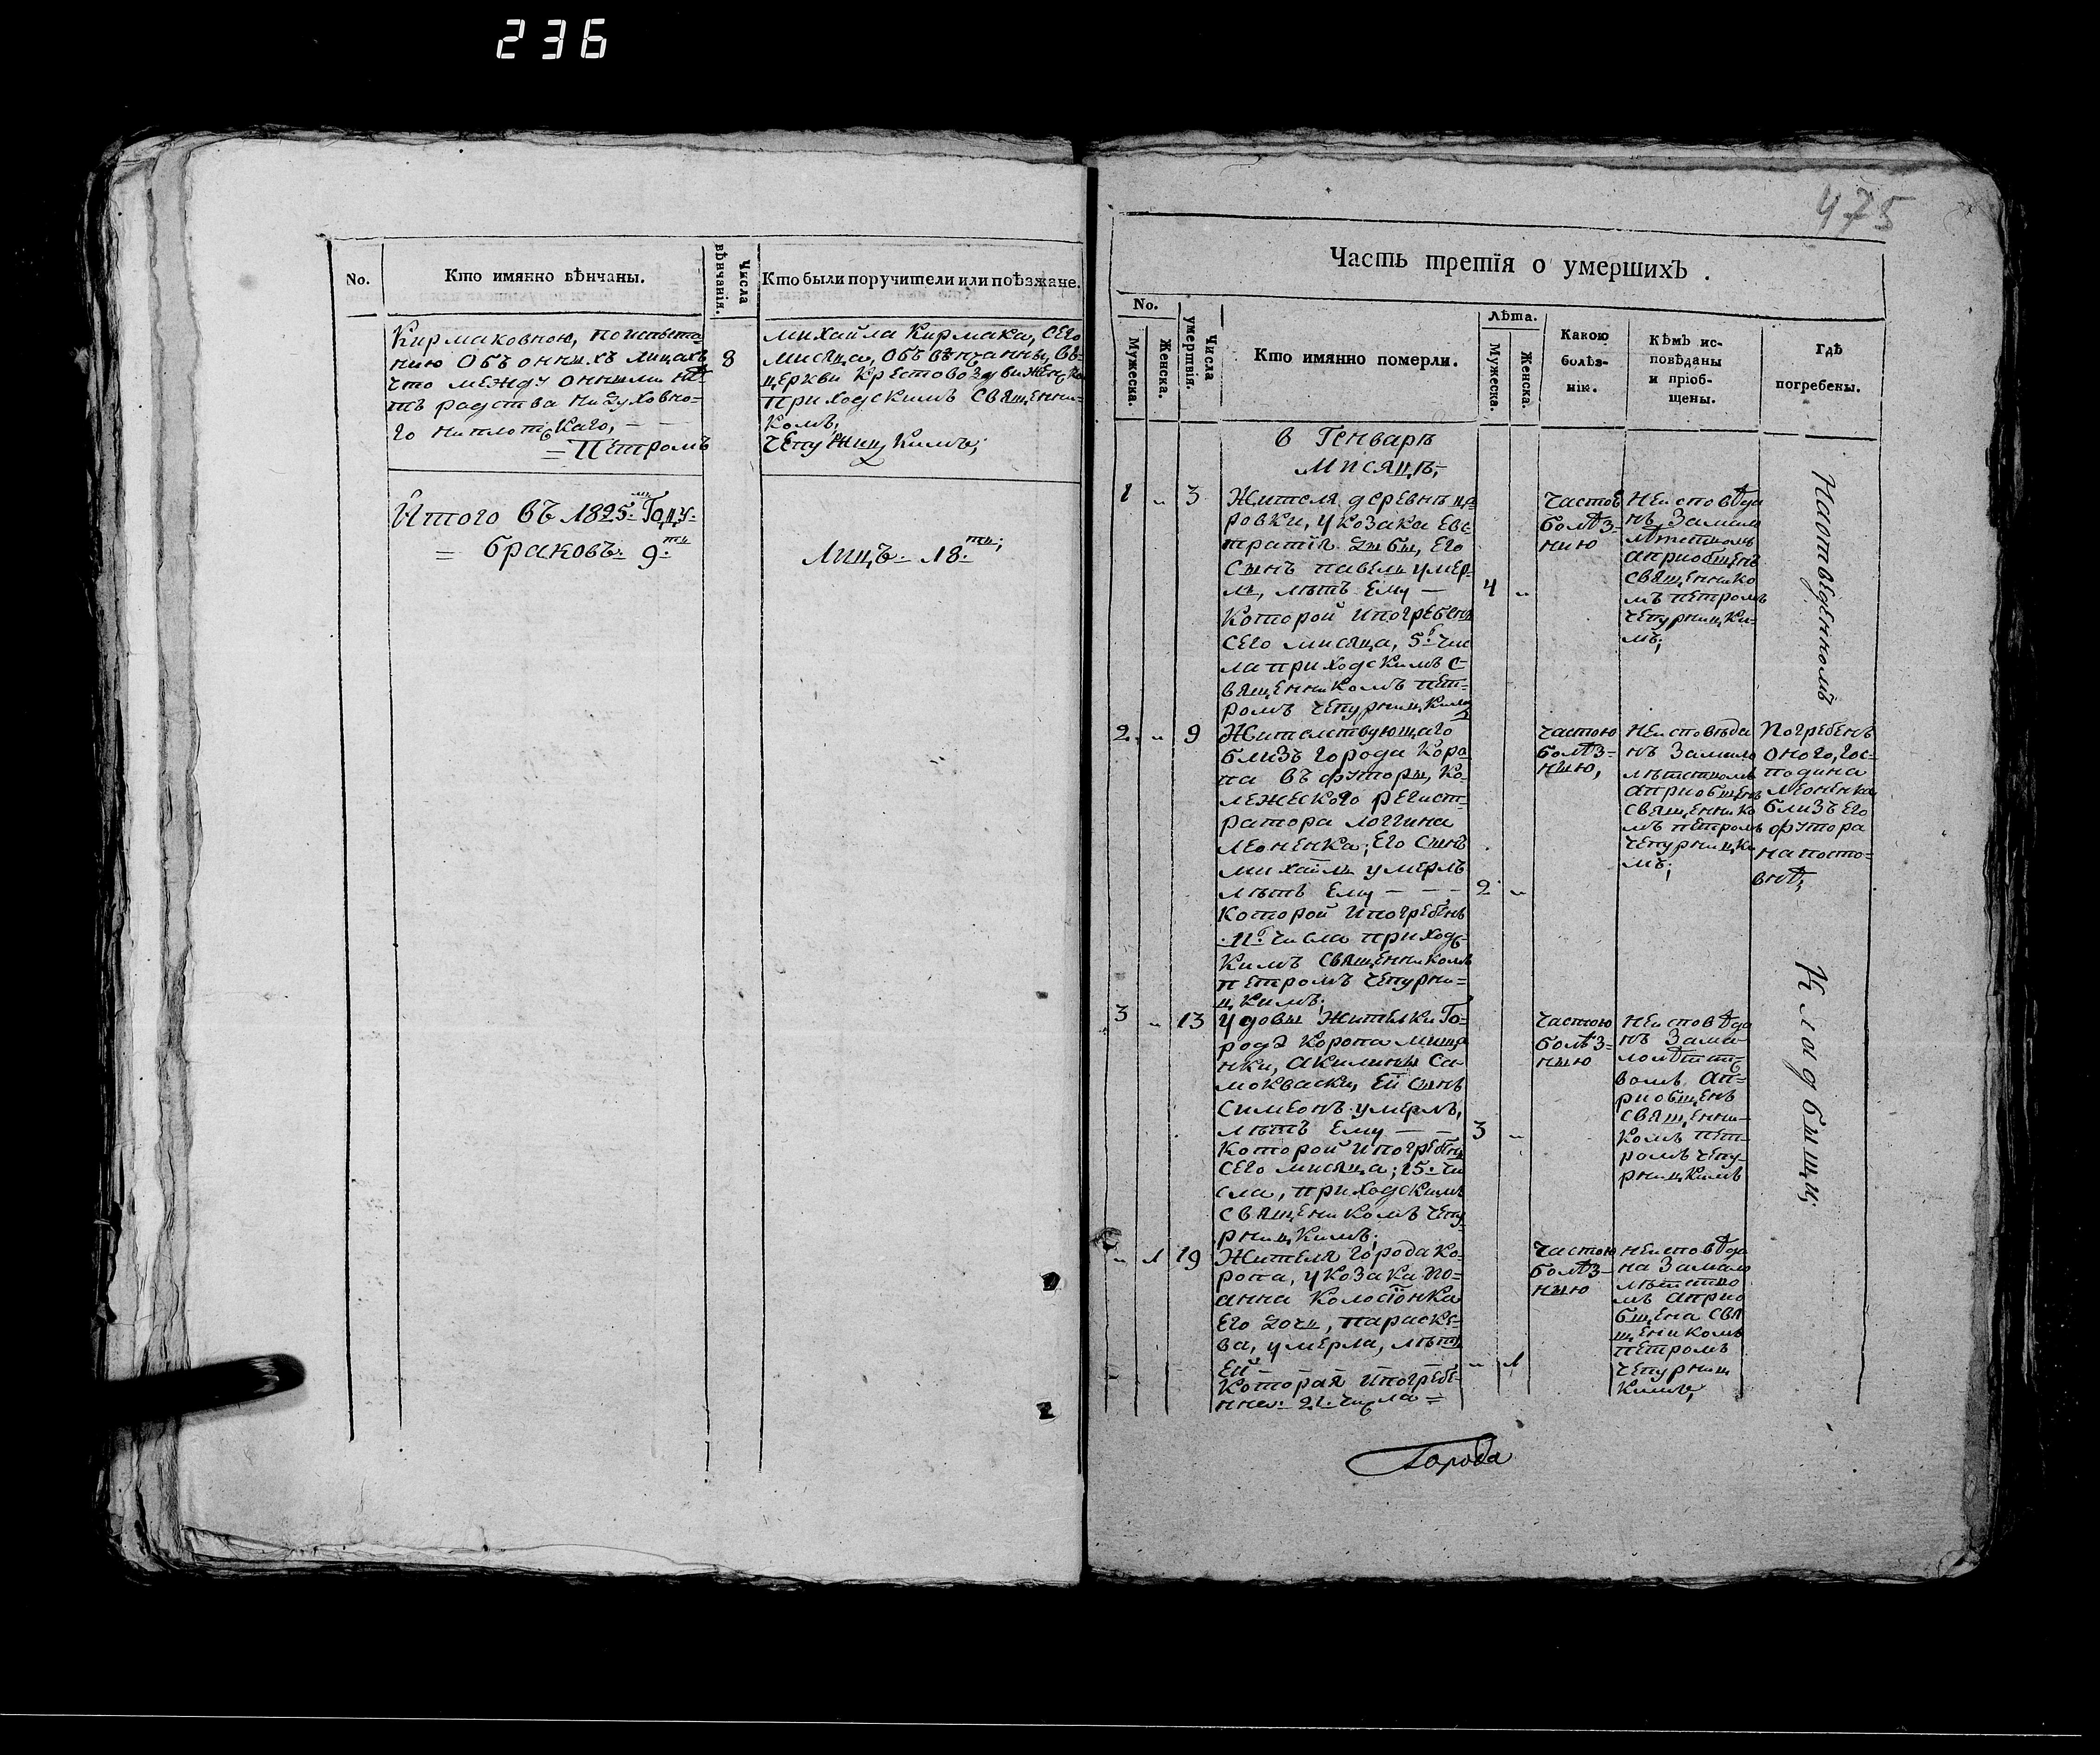 236
No.
Кто имянно вѣнчаны.
Числа вѣнчанія.
Кто были поручители или поѣзжане.
Кирмаковною, поиспыта
нию Объ онныхъ лицахъ
что между онними нѣ-
тъ радства ни духовно-
го ниплотскаго, —
= Петромъ
8
михайла Кирмака, сего
мисяца, обьвѣнчанны, въ
церкви Крестовоздвиженской
приходскимъ Священни-
комъ,
Чепурницкимъ;
Итого въ 1825.мъ Году-
= браковъ. 9.ть
Лицъ- 18.ть;
475
Часть третія о умершихъ .
No.
Мужеска.
Женска.
Числа умертвія.
Кто имянно померли.
Лѣта.
Мужеска.
Женска.
Какою
болѣз-
нію.
Кѣмъ ис-
повѣданы
и пріоб-
щены.
Гдѣ
погребены.
в Генварѣ
Мисяцѣ,-
1 „ 3
Жителя деревнѣ ца-
ровки, у козака Евс-
тратія Его
Сынъ павелъ умер-
лъ, лѣтъ Ему —
Которой ипогребенъ
Сего мисяца, 5.г чис
ла приходскимъ с-
вященникомъ пет-
ромъ Чепурницкимъ
4 „
Частов
болѣз-
нию
Неисповѣда
нъ Замало
лѣтствомъ
априобщенъ
священнико
мъ петромъ
Чепурницки-
мъ;
Наотведенномъ
2. „ 9
Жителствующаго
близъ города Коро
па въ футоры, Ко-
лежеского регист-
ратора логгина
леоненка; Его Сынъ
михайлъ умерлъ
лѣтъ Ему — — —
2 „
Которой ипогребенъ
11.г числа приходс-
кимъ священникомъ
петромъ Чепурни-
цкимъ;
Частою
болѣз-
нию,
Неисповѣда
нъ Замало
лѣтствомъ
априобщенъ
священнико
мъ петромъ
Чепурницки
мъ;
Погребенъ
оного, гос-
подина
леоненка
близъ Его
футора
на посто-
внѣ;
3 „ 13
удовы жителки Го-
рода Коропа мища
нки, Акилины Са-
мокваски, Ей сынъ
Симеонъ умерлъ,
лѣтъ Ему — —
3 „
Которой ипогребенъ
Сего мисяца; 15. чи
сла, приходскимъ
священикомъ Чепу
рницкимъ;
Частою
болѣз-
нию
Неисповѣда
нъ Зама-
лолѣтст-
вомъ ап-
риобщенъ
священни-
комъ пет-
ромъ Чепу-
рницкимъ
Кладбищи,
„ 1 19
Жителя города Ко-
ропа, у козака Ио-
анна Колосіонка
Его дочъ, параске-
ва, умерла, лѣтъ
Ей — — —
„ 1
Которая ипогребе-
нна. 21. числа =
Частою
болѣз-
нию
Неисповѣда
на Замало
лѣтство
мъ априо
бщена свя
щеникомъ
петромъ
Чепурниц
кимъ,